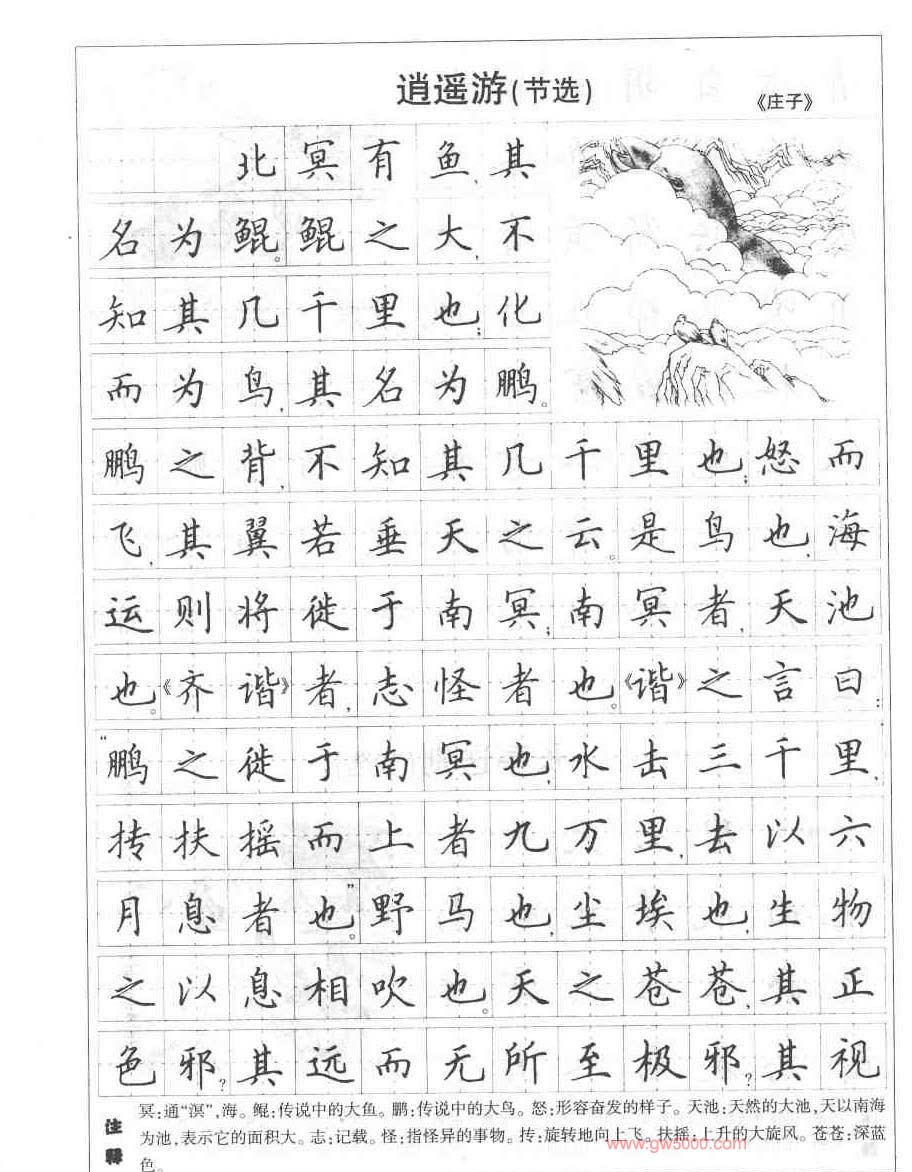 逍遥游(节选)
《庄子》
北冥有鱼,其
名为鲲。鲲之大,不
知其几千里也;化
而为鸟,其名为鹏。
鹏之背,不知其几千里也;怒而
飞,其翼若垂天之云。是鸟也,海
运则将徙于南冥;南冥者,天池
也。《齐谐》者,志怪者也。《谐》之言曰:
“鹏之徙于南冥也,水击三千里,
抟扶摇而上者九万里,去以六
月息者也。”野马也,尘埃也,生物
之以息相吹也。天之苍苍,其正
色邪?其远而无所至极邪?其视
注释
冥:通“溟”,海。鲲:传说中的大鱼。鹏:传说中的大鸟。怒:形容奋发的样子。天池:天然的大池,天以南海
为池,表示它的面积大。志:记载。怪:指怪异的事物。抟:旋转地向上飞。扶摇:上升的大旋风。苍苍:深蓝
色。
www.gw5000.com